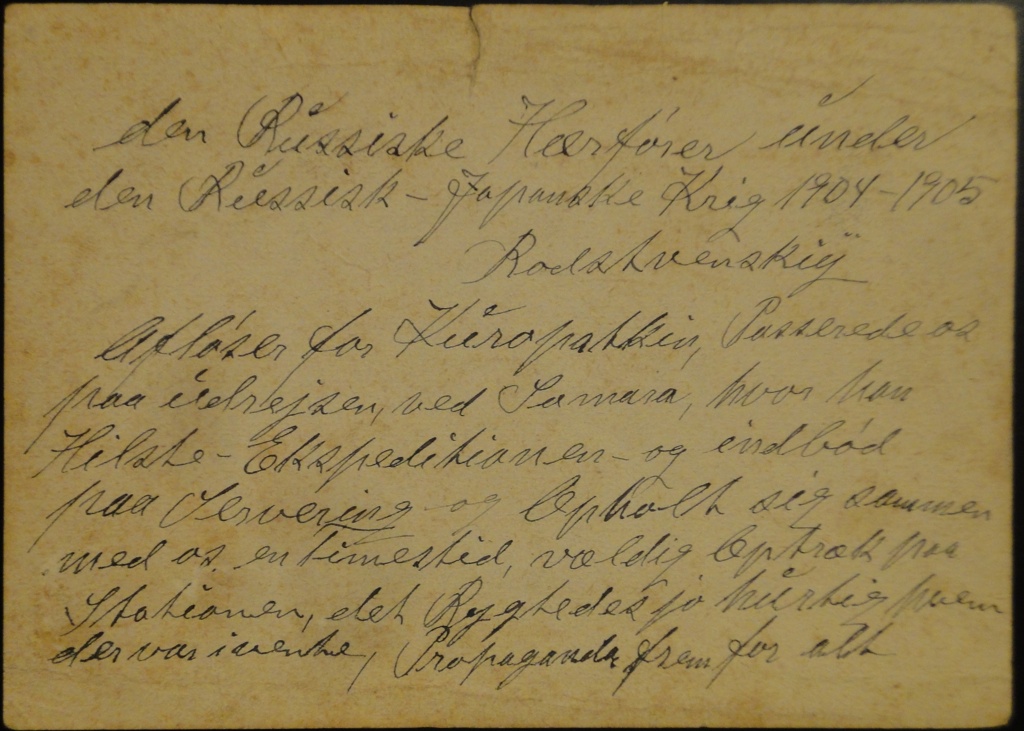 den Russiske Hærfører under
den Russisk-Japanske Krig 1904-1905
Rodstvenskiÿ
Afløser for Kuropatkin, Passerede os
paa udrejsen, ved Samara, hvor han
Hilste-Ekspeditionen-og indbød
paa Servering-og Opholt sig sammen
med os. en timestid, vældig Optræk paa
Stationen, det Rygtedes jo hurtig hvem
der var i vente, Propaganda frem for alt